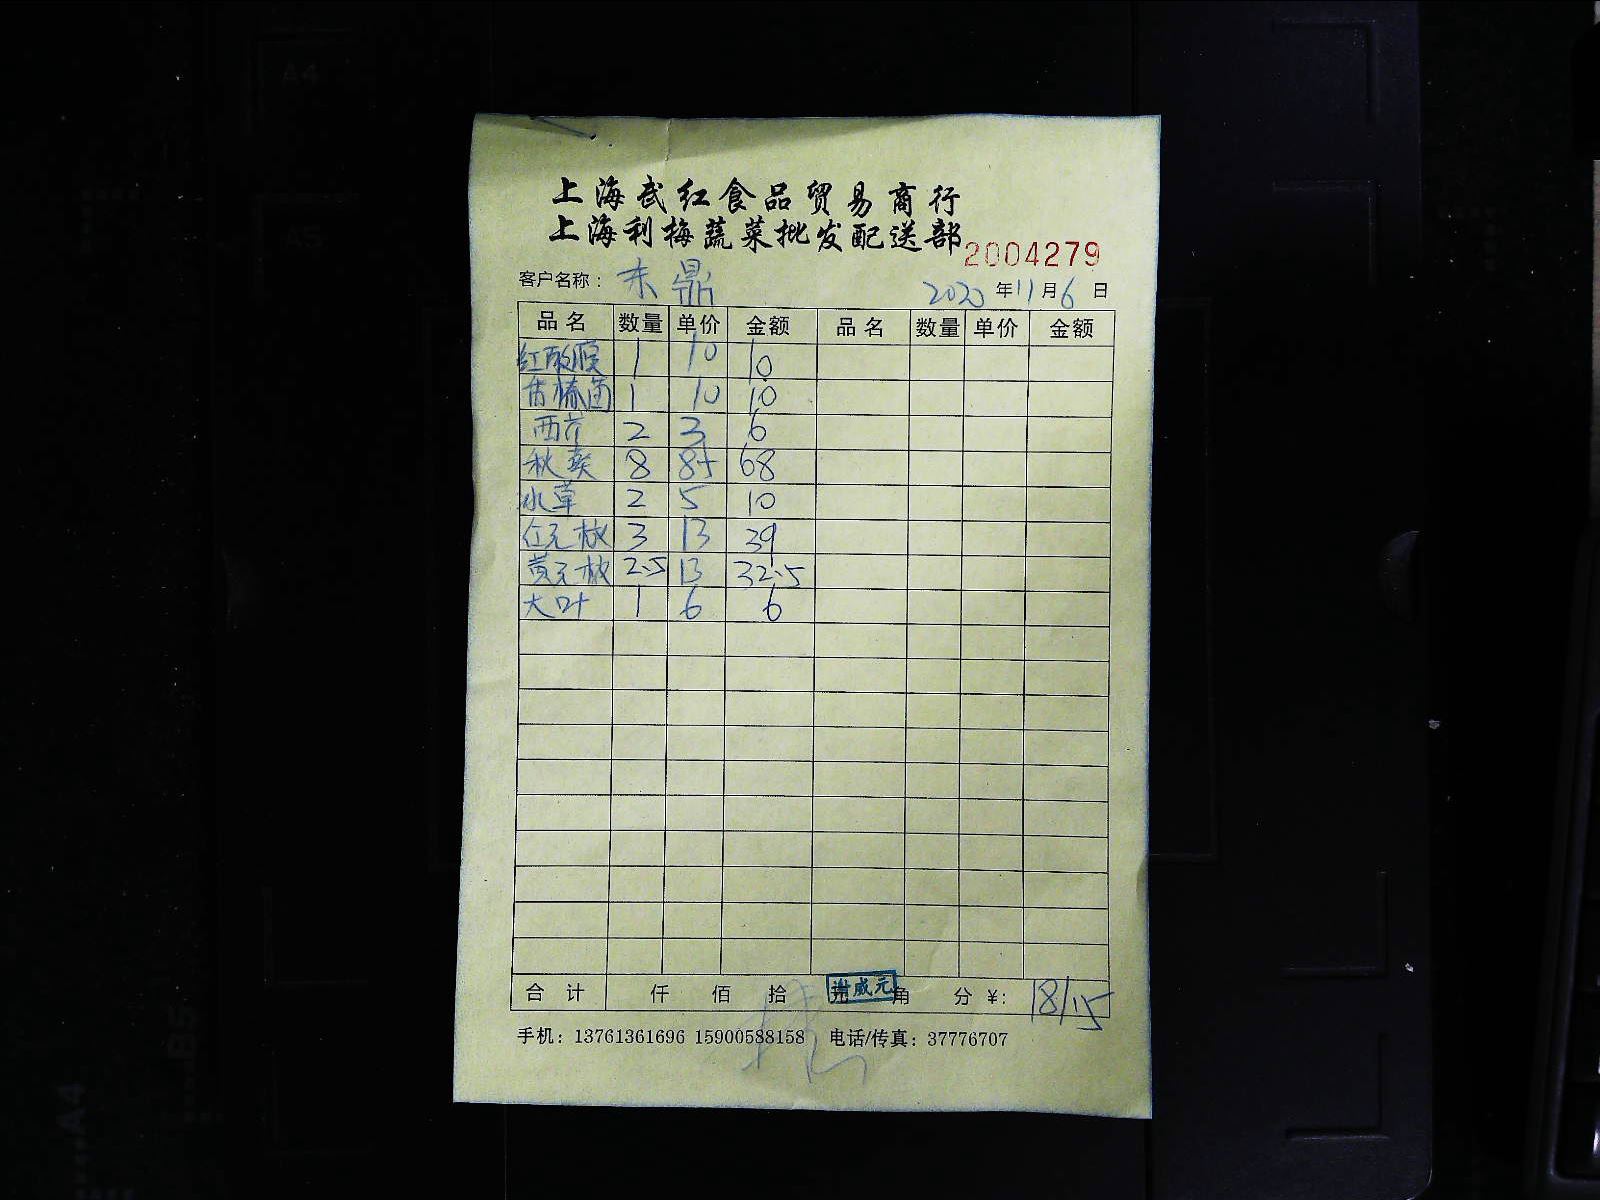 上海武红食品贸易商行
上海利梅蔬菜批发配送部
2004279
客户名称： 鼎 2020年11月6日
品名 数量 单价 金额 品名 数量 单价 金额
1 10 10
香椿苗 1 10 10
西芹 2 3 6
秋葵 8 85 68
水草 2 5 10
红元椒 3 13 39
黄元椒 2.5 13 32.5
大叶 1 6 6
合计 仟 佰 拾 元 角 分 ¥: 181.5
谢威元
手机：13761361696 15900588158 电话/传真：37776707
A4
A5
B5
A4